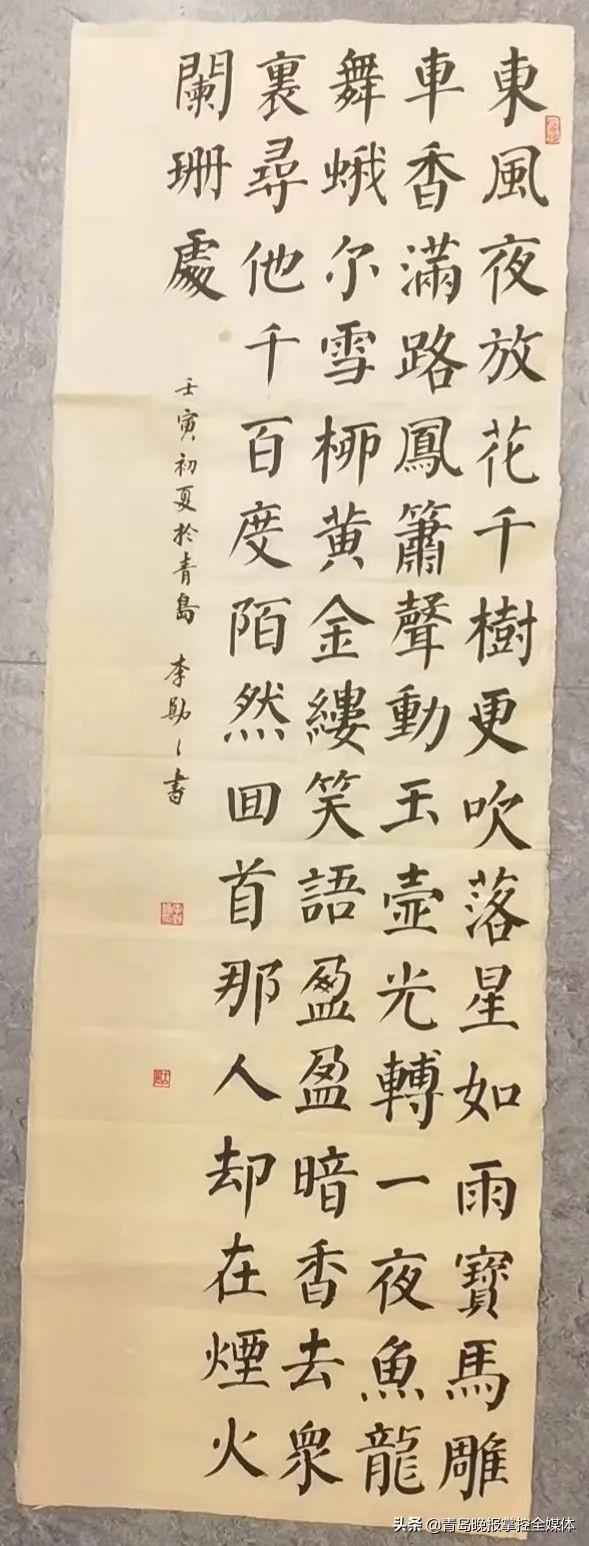 東風夜放花千樹更吹落星如雨寶馬雕
車香滿路鳳簫聲動玉壺光轉一夜魚龍
舞蛾尔雪柳黄金縷笑語盈盈暗香去衆
裏尋他千百度陌然回首那人却在煙火
闌珊處
壬寅初夏於青島 李勛々書
头条 @青岛晚报掌控全媒体